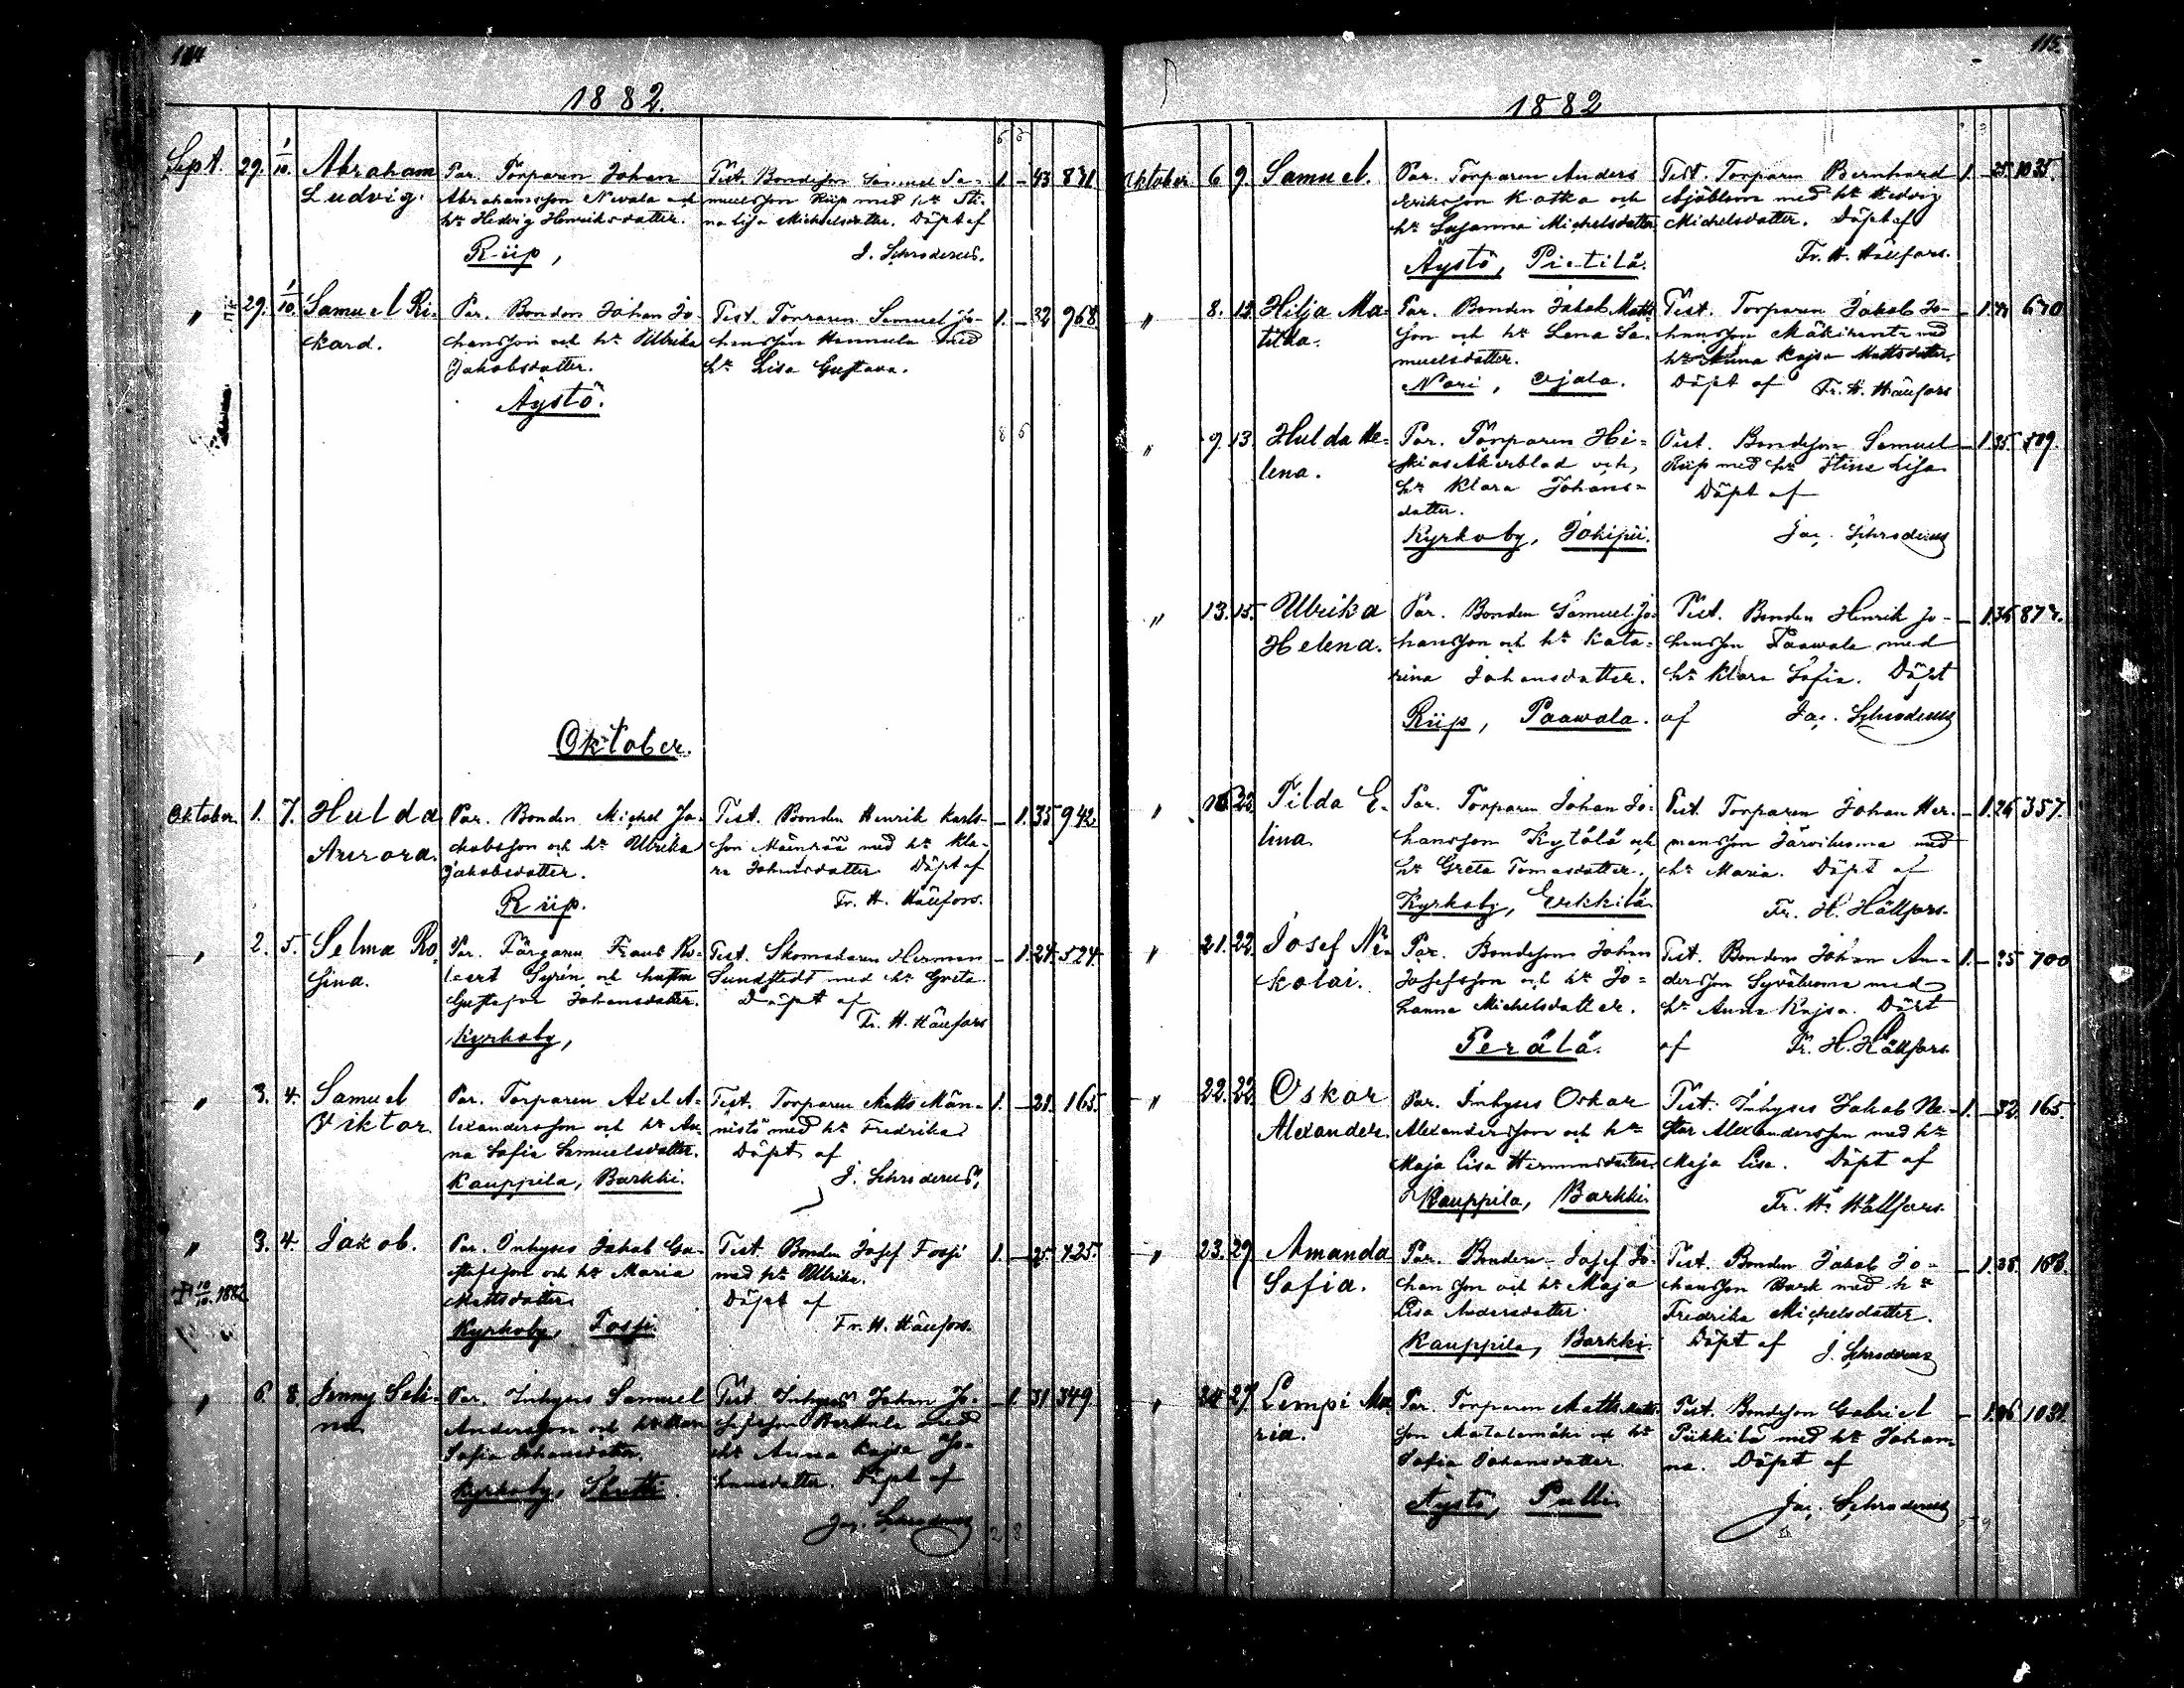 114
1882.
Sept. 29. 1/10. Abraham Ludvig.
Par. Torparen Johan
Abrahamsson Nevala och
hr Hedvig Henriksdatter.
Riip,
Test. Bondeson Samuel Sa-
muelsson Riip med hr Sti-
na Lisa Michelsdatter. Döpt af
J. Schroderus.
1. - 43 831
" 29. 1/10. Samuel Ri-
kard.
Par. Bonden Johan Jo-
hansson och hr Ulrika
Jakobsdatter.
Äystö.
Test. Torparen Samuel Jo-
hansson Hannula med
hr Lisa Gustava.
1. - 32 968
Oktober.
Oktober 1. 7. Hulda
Aurora.
Par. Bonden Michel Ja-
kobsson och hr Ulrika
Jakobsdatter.
Riip.
Test. Bonden Henrik Karls-
son med hr Kla-
ra Johansdatter Döpt af
Fr. H. Hällfors.
- 1. 35 942
" 2. 5. Selma Ro-
sina.
Par. Färgaren Frans Ro-
bert Syrén och hustru
Gustafva Johansdatter.
Kyrkoby,
Test. Skomakaren Herman
Sundstedt med hr Greta
Döpt af
Fr. H. Hällfors
- 1. 24. 524.
" 3. 4. Samuel
Viktor.
Par. Torparen Axel A-
lexandersson och hr An-
na Sofia Samuelsdatter.
Kauppila, Barkki.
Test. Torparen Matts Män-
nistö med hr Fredrika
Döpt af
J. Schroderus,
1. - 28. 165.
" 3. 4. Jakob.
† 10/10. 1882
Par. Inhyses Jakob Gu-
stafsson och hr Maria
Mattsdatter
Kyrkoby, Fossi.
Test. Bonden Josef Fossi
med hr Ulrika.
Döpt af
Fr. H. Hällfors.
1. - 25. 425.
" 6. 8. Jenny Seli-
na
Par. Inhyses Samuel
Andersson och hr
Sofia Johansdatter.
Kyrkoby,
Test. Inhyses Johan Jo-
sefsson med
hr Anna Kajsa Jo-
hansdatter. Döpt af
Jac. Schroderus
- 1. 31 349.
115.
1882
Oktober 6 9. Samuel.
Par. Torparen Anders
Eriksson Kotka och
hr Susanna Michelsdatter
Äystö, Pietilä.
Test. Torparen Bernhard
Sjöblom med hr Hedvig
Michelsdatter. Döpt af
Fr. H. Hällfors.
1. - 25. 1035.
" 8. 12. Hilja Ma-
tilda.
Par. Bonden Jakob Matts-
son och hr Lena Sa-
muelsdatter.
Nori, Ojala.
Test. Torparen Jakob Jo-
hansson Mäkiranta med
hr Anna Kajsa Mattsdatter.
Döpt af Fr. H. Hällfors
- 1. 670
" 9. 13. Hulda He-
lena.
Par. Torparen He-
skias Åkerblad och
hr Klara Johans-
datter.
Kyrkoby, Jokipii.
Test. Bondeson Samuel
Riip med hr Stina Lisa
Döpt af
Jac. Schroderus
- 1. 35. 509.
" 13. 15. Ulrika
Helena.
Par. Bonden Samuel Jo-
hansson och hr Kata-
rina Johansdatter.
Riip, Paawola.
Test. Bonden Henrik Jo-
hansson Paawola med
hr Klara Sofia. Döpt
af Jac. Schroderus
- 1. 36 877.
" 16 22 Tilda E-
lina.
Par. Torparen Johan Jo-
hansson Kytölä och
hr Greta Tomasdatter.,
Kyrkoby, Erkkilä
Test. Torparen Johan Her-
mansson Järviluoma med
hr Maria. Döpt af
Fr. H. Hällfors.
- 1. 26 357.
" 21. 22 Josef Ni-
kolai.
Par. Bondeson Johan
Josefsson och hr Jo-
hanna Michelsdatter.
Perälä.
Test. Bonden Johan An-
dersson Syväluoma med
hr Anna Kajsa. Döpt
af Fr. H. Hällfors.
1. - 25 700
" 22. 22. Oskar
Alexander.
Par. Inhyses Oskar
Alexandersson och hr
Maja Lisa Hermansdatter.
Kauppila, Barkki.
Test. Inhyses Jakob Ne-
stor Alexandersson med hr
Maja Lisa. Döpt af
Fr. H. Hällfors.
1. - 32 165.
" 23. 29. Amanda
Sofia.
Par. Bonden Josef Jo-
hansson och hr Maja
Lisa Andersdatter.
Kauppila, Barkki.
Test. Bonden Jakob Jo-
hansson Bark med hr
Fredrika Michelsdatter.
Döpt af J. Schroderus
- 1. 38. 168.
" 24 27. Lempi Ma-
ria.
Par. Torparen Matts Matts-
son Matalamäki och hr
Sofia Johansdatter.
Äystö, Pulli.
Test. Bondeson Gabriel
Piikkilä med hr Johan-
na. Döpt af
Jac. Schroderus
- 1. 26 1031.